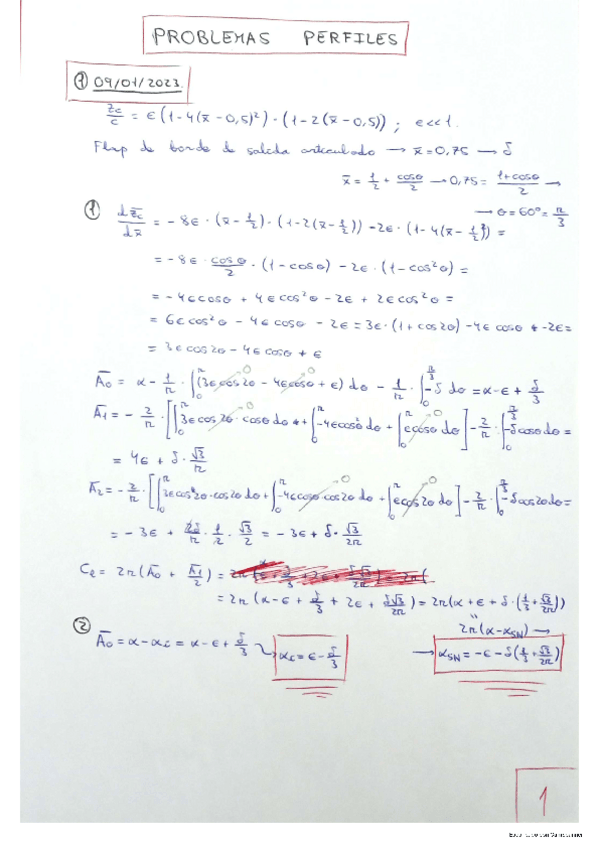 PROBLEMAS PERFILES
① 09/01/2023.
zc/c = ε (1-4(x̄-0,5)²)·(1-2(x̄-0,5)) ; ε<<1.
Flap de borde de salida articulado → x̄=0,75 → δ
x̄ = 1/2 + cosθ/2 → 0,75 = (1+cosθ)/2 →
→ θ=60º= π/3
① dz̄c/dx̄ = -8ε·(x̄-1/2)·(1-2(x̄-1/2)) -2ε·(1-4(x̄-1/2)²) =
= -8ε · cosθ/2 · (1-cosθ) - 2ε·(1-cos²θ) =
= -4εcosθ + 4εcos²θ - 2ε + 2εcos²θ =
= 6εcos²θ - 4εcosθ - 2ε = 3ε·(1+cos2θ) -4ε cosθ + -2ε=
= 3εcos2θ - 4εcosθ + ε
Ā₀ = α - 1/π · ∫₀^π (3εcos2θ - 4εcosθ + ε) dθ - 1/π · ∫₀^(π/3) -δ dθ = α-ε + δ/3
Ā₁ = - 2/π · [∫₀^π 3εcos2θ · cosθdθ + ∫₀^π -4εcos²θdθ + ∫₀^π εcosθ dθ] - 2/π · ∫₀^(π/3) -δcosθdθ =
= 4ε + δ · √3/π
Ā₂ = - 2/π · [∫₀^π 3εcos²2θ·cos2θdθ + ∫₀^π -4εcosθ cos2θdθ + ∫₀^π εcos2θ dθ] - 2/π · ∫₀^(π/3) -δcos2θdθ =
= -3ε + 2δ/π · 1/2 · √3/2 = -3ε + δ· √3/2π
Cℓ = 2π(Ā₀ + Ā₁/2) =
= 2π (α - ε + δ/3 + 2ε + δ√3/2π) = 2π(α + ε + δ·(1/3 + √3/2π))
②
2π(α-αSN) →
Ā₀ = α-αc = α - ε + δ/3 ↘ αc = ε - δ/3
→ αSN = -ε - δ(1/3 + √3/2π)
1